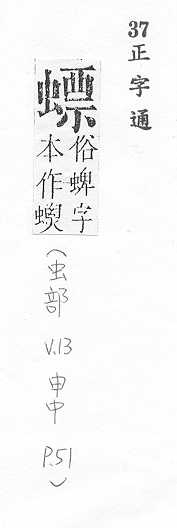 37 正字通
螵
俗蜱字
本作
(虫部 V.13 申中 P.51)